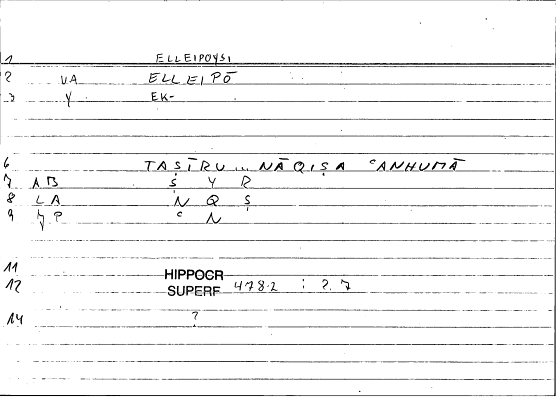 1 ELLEIPOYSI
2 VA ELLEIPŌ
3 Y EK-
6 TAṢĪRU ... NĀQIṢA ʿANHUMĀ
7 AB Ṣ Y R
8 LA N Q Ṣ
9 P ʿ N
11 HIPPOCR
12 SUPERF 478.2 : 2.7
14 ?